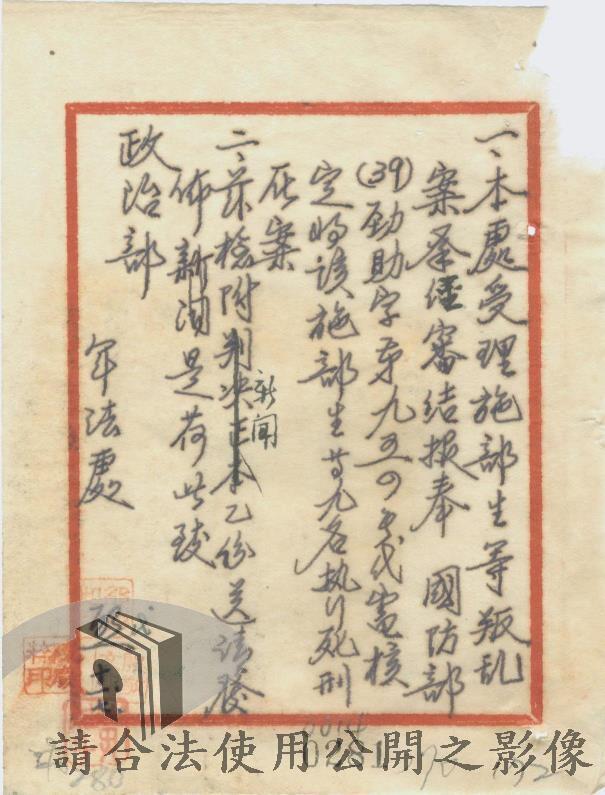 一、本處受理施部生等叛乱
案系經審結報奉 國防部
(39)勁助字第九五四號代電核
定將該施部生等九名执行死刑
在案
二、茲檢附判决正本乙份送請發
新聞
佈新闻是荷此致
政治部
軍法處
請合法使用公開之影像